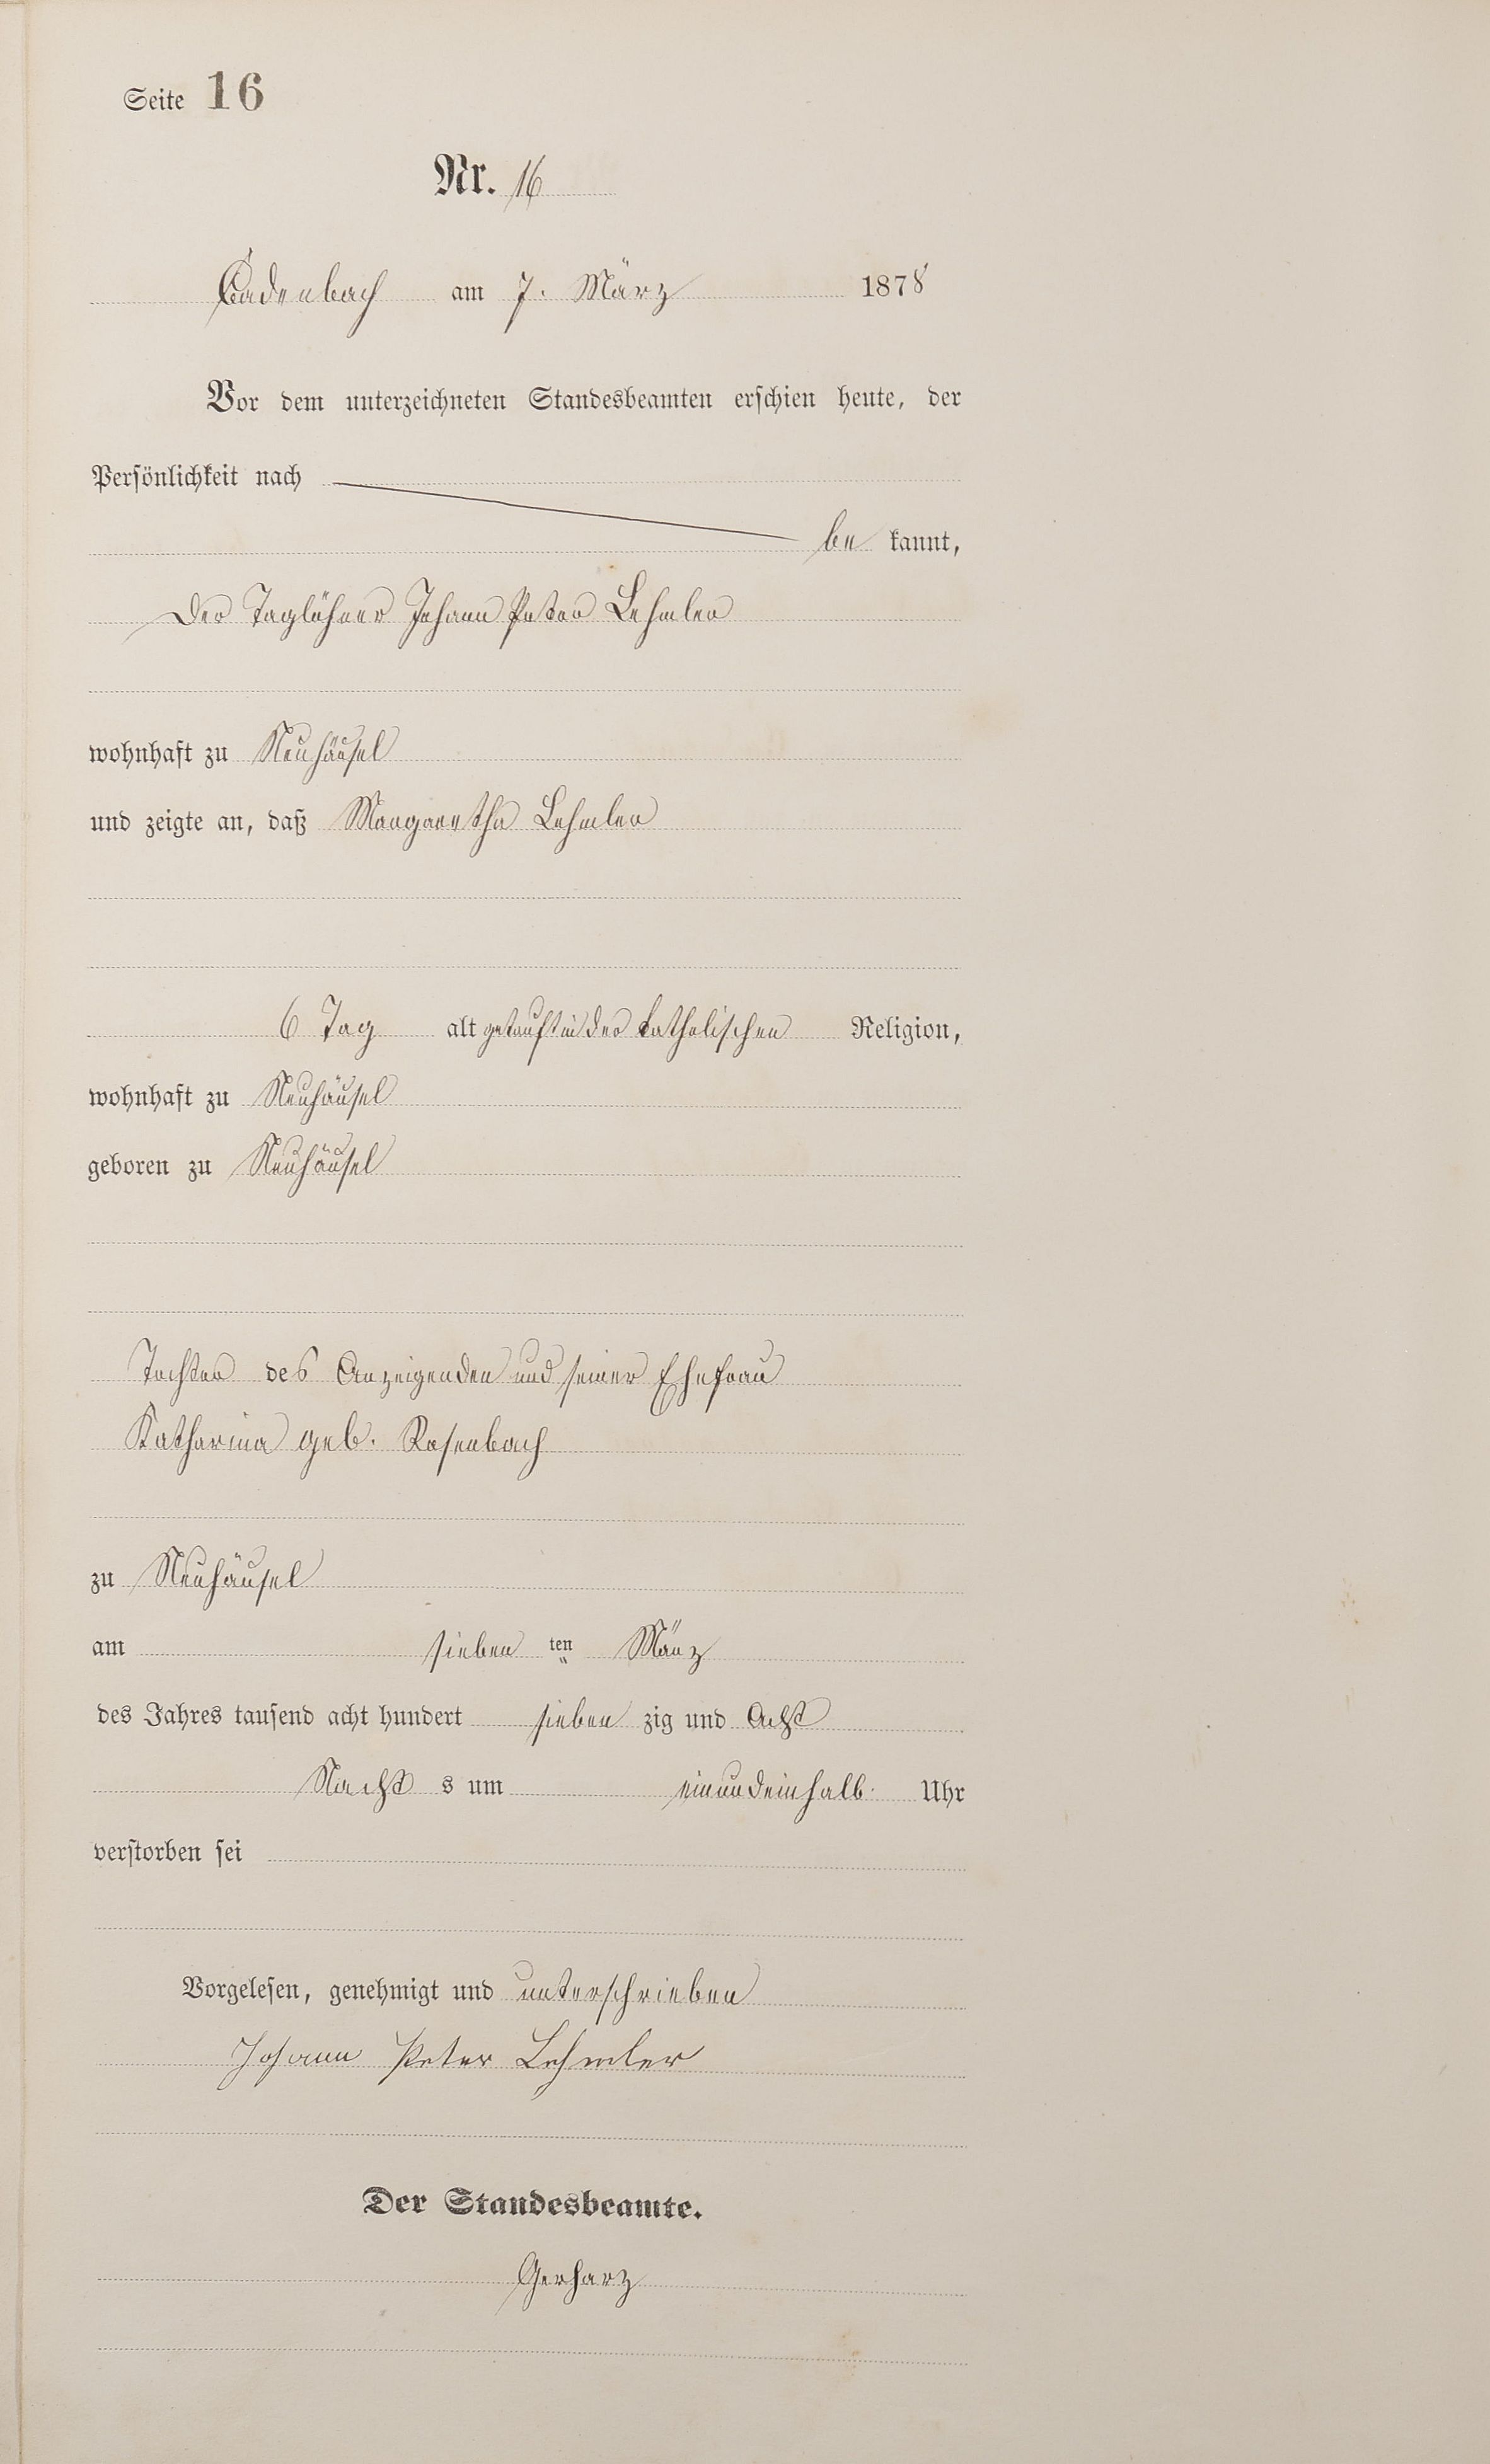 Seite 16
Nr. 16
Cadenbach am 7. März 1878
Vor dem unterzeichneten Standesbeamten erschien heute, der
Persönlichkeit nach
be kannt,
der Taglöhner Johann Peter Lehmler
wohnhaft zu Neuhäusel
und zeigte an, daß Margaretha Lehmler
6 Tag alt getauft in der katholischen Religion,
wohnhaft zu Neuhäusel
geboren zu Neuhäusel
Tochter des Anzeigenden und seiner Ehefrau
Katharina geb. Rosenbach
zu Neuhäusel
am sieben ten März
des Jahres tausend acht hundert sieben zig und Acht
Nacht s um einundeinhalb Uhr
verstorben sei
Vorgelesen, genehmigt und unterschrieben
Johann Peter Lehmler
Der Standesbeamte.
Gerharz